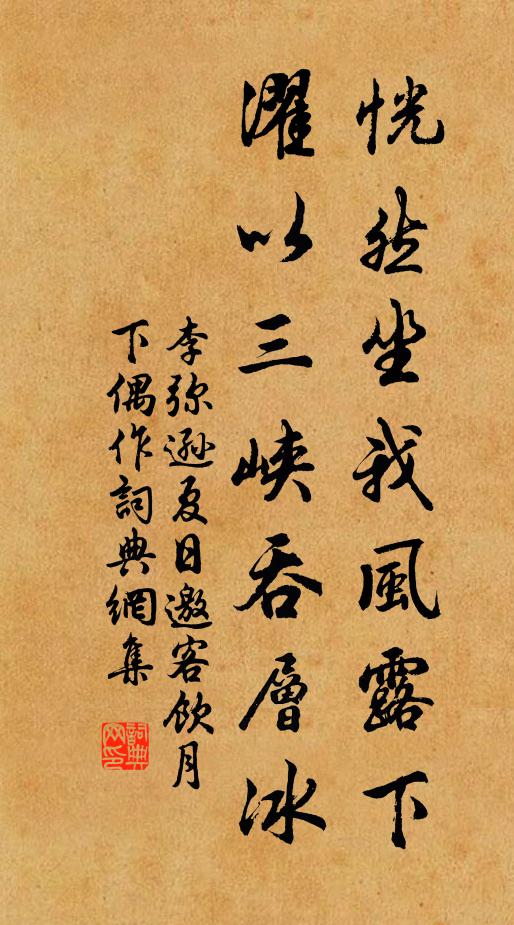 恍然坐我風露下
濯以三峽吞層冰
李弥遜夏日邀客飲月
下偶作詞典網集
詞典
網印